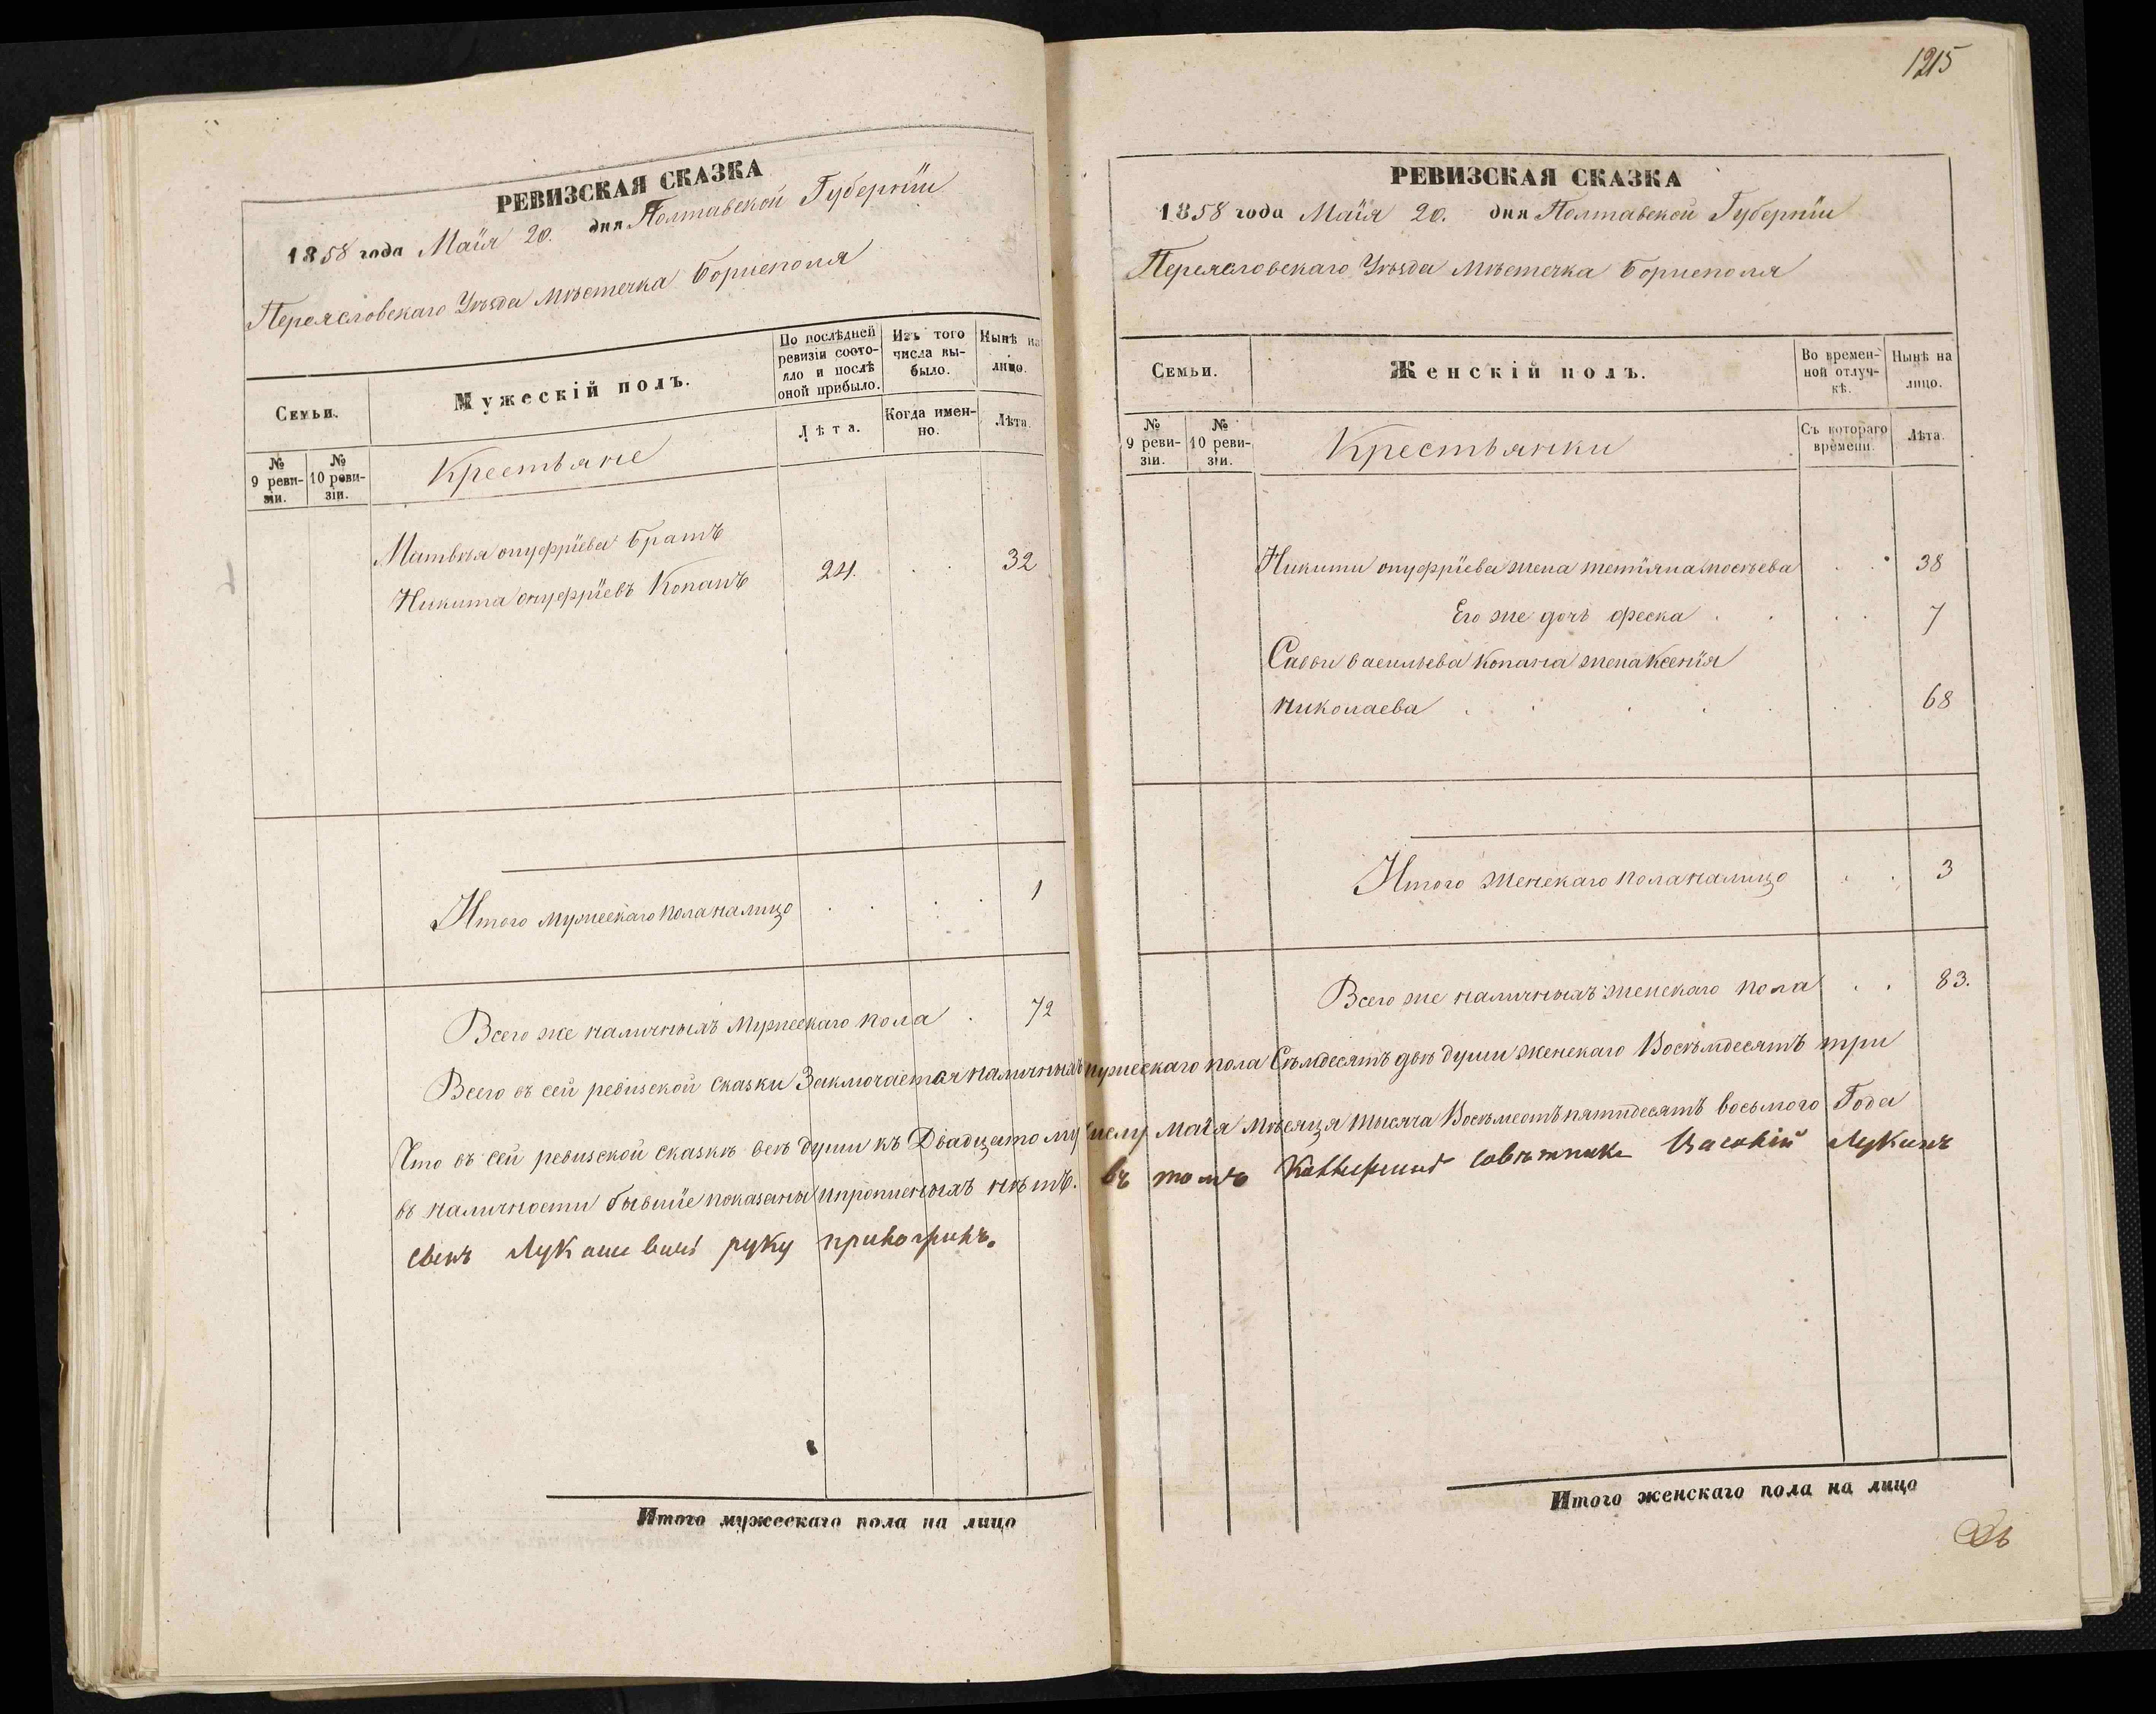 РЕВИЗСКАЯ СКАЗКА
1858 года Маія 20. дня Полтавской Губерніи
Переясловскаго Уѣзда мѣстечка Борисполя
Семьи.
Мужескій полъ.
По послѣдней ревизіи состояло и послѣ оной прибыло.
Изъ того числа выбыло.
Нынѣ на лицо.
№ 9 ревизіи.
№ 10 ревизіи.
Крестьяне
Лѣта.
Когда именно.
Лѣта.
Матвѣя онуфріева братъ
Никита онуфріевъ Копанъ 24. 32
Итого мужескаго пола налицо 1
Всего же наличныхъ мужескаго пола 72
1215
РЕВИЗСКАЯ СКАЗКА
1858 года Маія 20. дня Полтавской Губерніи
Переясловскаго Уѣзда мѣстечка Борисполя
Семьи.
Женскій полъ.
Во временной отлучкѣ.
Нынѣ на лицо.
№ 9 ревизіи.
№ 10 ревизіи.
Крестьянки
Съ котораго времени.
Лѣта.
Никиты онуфріева жена тетіяна 38
Его же дочь феска 7
Саввы васильева копана жена Ксенія
николаева 68
Итого женскаго пола налицо 3
Всего же наличныхъ женскаго пола 83.
Всего въ сей ревизской сказки Заключается наличныхъ мужескаго пола Семдесятъ двѣ души женскаго Восѣмдесятъ три
Что въ сей ревизской сказкѣ всѣ души къ Двадцатому числу маія мѣсяца тысяча Восѣмсотъ пятидесятъ восьмого Года
въ наличности бывшіе показаны и прописныхъ нѣтъ. въ томъ совѣтникъ Василій Лукинъ
сынъ Лукашевичъ руку приложилъ.
Итого мужескаго пола на лицо
Итого женскаго пола на лицо